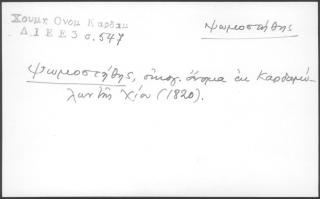 Χουμ. Ονομ Καρδαμ
Δ.Ι Ε Ε 3 σ. 547
Ψωμοστήθης
Ψωμοστήθης, οἰκογ. ὄνομα ἐκ Καρδαμύ-
λων τῆς Χίου (1820).